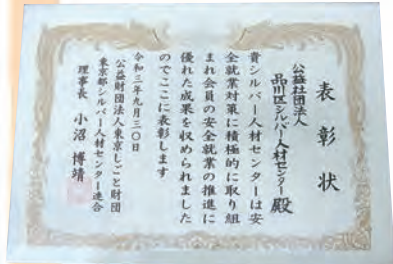 表彰状
公益社団法人
品川区シルバー人材センター殿
貴シルバー人材センターは安
全就業対策に積極的に取り組
まれ会員の安全就業の推進に
優れた成果を収められました
のでここに表彰します
令和三年九月三〇日
公益財団法人東京しごと財団
東京都シルバー人材センター連合
理事長 小沼博靖